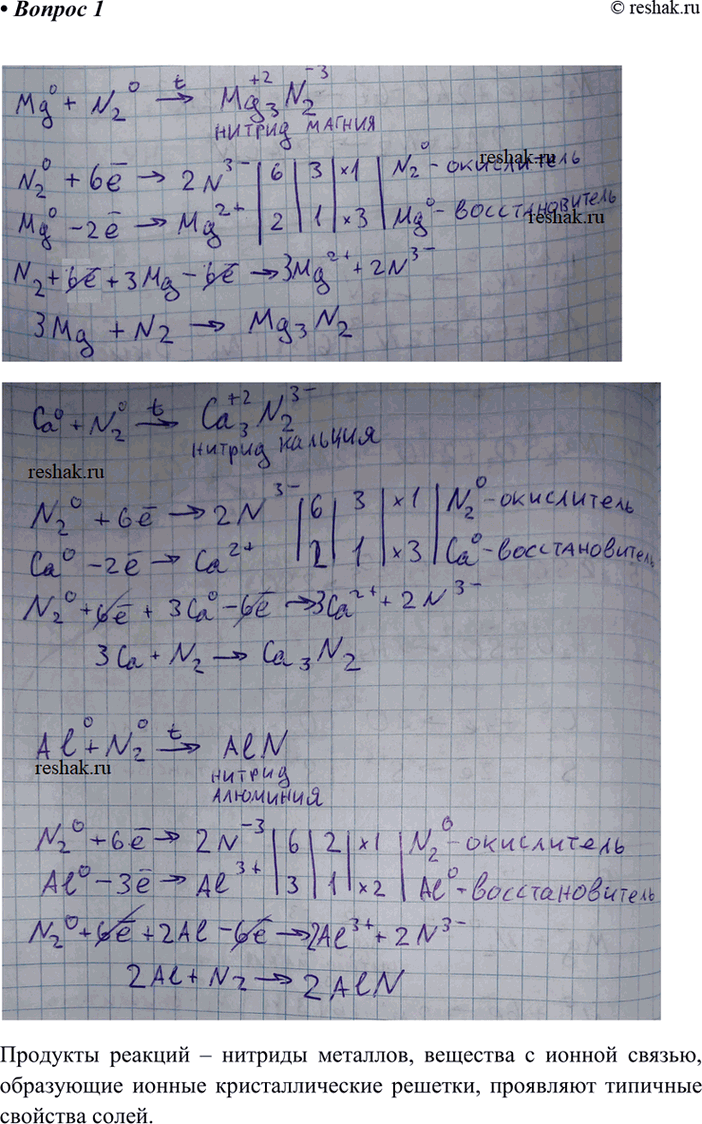 • Вопрос 1
© reshak.ru
Mg⁰ + N₂⁰ —t→ Mg₃⁺²N₂⁻³
НИТРИД МАГНИЯ
N₂⁰ + 6e̅ → 2N³⁻ | 6 | 3 | ×1 | N₂⁰ - окислитель
reshak.ru
Mg⁰ - 2e̅ → Mg²⁺ | 2 | 1 | ×3 | Mg⁰ - восстановитель
reshak.ru
N₂ + 6e̅ + 3Mg - 6e̅ → 3Mg²⁺ + 2N³⁻
3Mg + N₂ → Mg₃N₂
Ca⁰ + N₂⁰ —t→ Ca₃⁺²N₂³⁻
НИТРИД КАЛЬЦИЯ
reshak.ru
N₂⁰ + 6e̅ → 2N³⁻ | 6 | 3 | ×1 | N₂⁰ - окислитель
Ca⁰ - 2e̅ → Ca²⁺ | 2 | 1 | ×3 | Ca⁰ - восстановитель
N₂⁰ + 6e̅ + 3Ca⁰ - 6e̅ → 3Ca²⁺ + 2N³⁻
3Ca + N₂ → Ca₃N₂
Al⁰ + N₂⁰ —t→ AlN
reshak.ru
НИТРИД
АЛЮМИНИЯ
N₂⁰ + 6e̅ → 2N⁻³ | 6 | 2 | ×1 | N₂⁰ - окислитель
Al⁰ - 3e̅ → Al³⁺ | 3 | 1 | ×2 | Al⁰ - восстановитель
N₂⁰ + 6e̅ + 2Al - 6e̅ → 2Al³⁺ + 2N³⁻
2Al + N₂ → 2AlN
Продукты реакций – нитриды металлов, вещества с ионной связью,
образующие ионные кристаллические решетки, проявляют типичные
свойства солей.